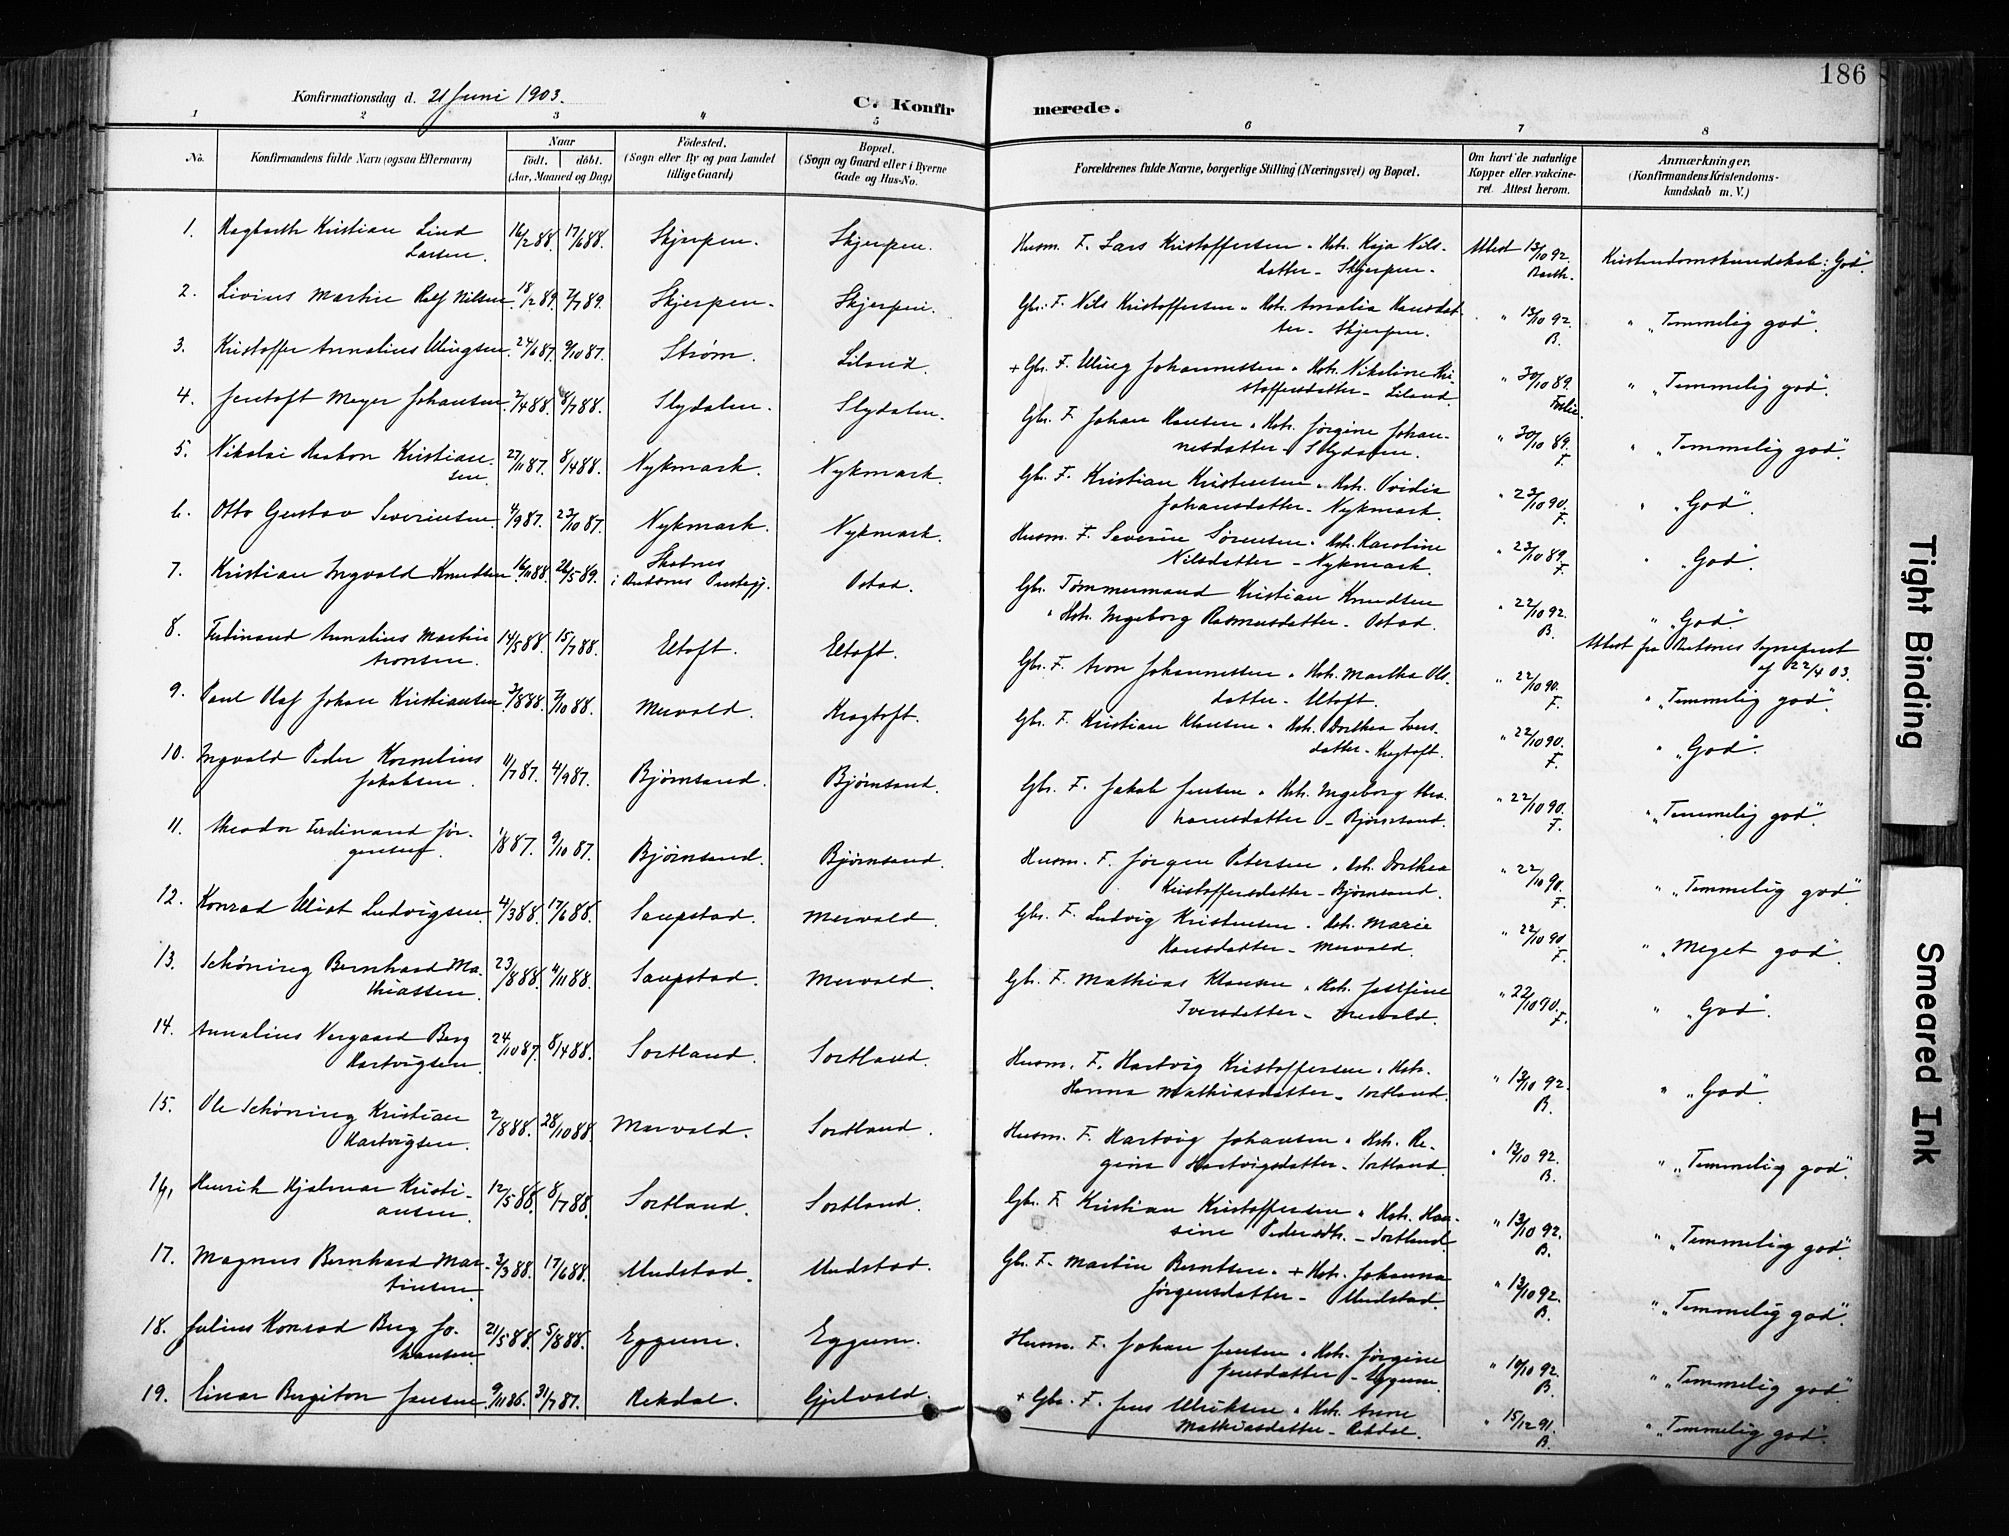 186
Konfirmationsdag d. 21 Juni 1903.
C. Konfir
merede.
1 2 3 4 5 6 7 8
No.
Konfirmandens fulde Navn (ogsaa Efternavn)
Naar
födt.
döbt.
(Aar, Maaned og Dag)
Födested.
(Sogn eller By og paa Landet
tillige Gaard)
Bopæl.
(Sogn og Gaard eller i Byerne
Gade og Hus-No.
Forældrenes fulde Navne, borgerlige Stilling (Næringsvei) og Bopæl.
Om havt de naturlige
Kopper eller vakcine-
ret. Attest herom.
Anmærkninger.
(Konfirmandens Kristendoms-
kundskab m. V.)
1. Kristian Lind 16/2 88. 17/6 88. Skjerpen. Skjerpen. Husm. F. Lars Kristoffersen Kaja Nils- Attest 13/10 92. Kristendomskundskab: "God".
Larsen. datter - Skjerpen.
2. Livius Martin Rolf Nilsen 18/2 89. 7/7 89. Skjerpen. Skjerpen. Gbr. F. Nils Kristoffersen Amalia Hansdat- " 13/10 92. " "Temmelig god".
ter - Skjerpen. B.
3. Kristoffer Annalius Ulrigsen 24/6 87. 9/10 87. Strøm. Liland. + Gbr. F. Ulrig Johannessen Nikoline Kri- " 30/10 89. " "Temmelig god".
stoffersdatter - Liland.
4. Jentoft Meyer Johansen 2/4 88. 8/7 88. Slydalen. Slydalen. Gbr. F. Johan Hansen Jørgine Johan- " 30/10 89. " "Temmelig god".
nesdatter - Slydalen. F.
5. Nikolai Haakon Kristian- 27/11 87. 8/4 88. Nykmark. Nykmark. Gbr. F. Kristian Kristensen Ovidia " 23/10 90. " "God".
sen. Johansdatter - Nykmark. F.
6. Otto Gustav Severinsen 4/9 87. 23/10 87. Nykmark. Nykmark. Husm. F. Severin Sørensen Karoline " 23/10 89. " "God".
Nilsdatter - Nykmark. F.
7. Kristian Ingvald Knudsen 16/11 88. 26/5 89. Skatnes Ostad. Gbr. Tømmermand Kristian Knudsen " 22/10 92. " "God".
Ingeborg Rasmusdatter - Ostad. B.
Attest fra
af 22/4 03.
8. Ferdinand Annalius Martin 14/5 88. 15/7 88. Eltoft. Eltoft. Gbr. F. Aron Johannessen Martha Ols- " 22/10 90. " "Temmelig god".
Aronsen. datter - Eltoft. F.
9. Paul Olaf Johan Kristiansen 3/8 88. 7/10 88. Mervold. Kragtoft. Gbr. F. Kristian Klausen Dorthea Ivers- " 22/10 90. " "God".
datter - Kragtoft. F.
10. Ingvald Peder Kornelius 11/7 87. 4/9 87. Bjørnsand. Bjørnsand. Gbr. F. Jakob Jensen Ingeborg " 22/10 90. " "Temmelig god".
Jakobsen. - Bjørnsand. F.
11. Theodor Ferdinand Jør- 1/8 87. 9/10 87. Bjørnsand. Bjørnsand. Husm. F. Jørgen Petersen Dorthea " 22/10 90. " "Temmelig god".
gensen. Kristoffersdatter - Bjørnsand. F.
12. Konrad Ulrik Ludvigsen 4/3 88. 17/6 88. Saupstad. Mervold. Gbr. F. Ludvig Kristensen Marie " 22/10 90. " "Meget god".
Hansdatter - Mervold. F.
13. Schöning Bernhard Ma- 23/8 88. 4/11 88. Saupstad. Mervold. Gbr. F. Mathias Klausen Josefine " 22/10 90. " "God".
thiassen. Iversdatter - Mervold. F.
14. Annalius Norgaard Berg 24/10 87. 8/4 88. Sortland. Sortland. Husm. F. Hartvig Kristoffersen
Hartvigsen. Hanna Mathiasdatter - Sortland. " 13/10 92. B. " "God".
15. Ole Schöning Kristian 2/8 88. 28/10 88. Mervold. Sortland. Husm. F. Hartvig Johansen Re- " 13/10 92. " "Temmelig god".
Hartvigsen. gina Hartvigsdatter - Sortland. B.
16. Henrik Hjalmar Kristi- 12/5 88. 8/7 88. Sortland. Sortland. Gbr. F. Kristian Kristoffersen Han- " 13/10 92. " "Temmelig god".
ansen. sine - Sortland. B.
17. Magnus Bernhard Mar- 3/3 88. 17/6 88. Undstad. Undstad. Gbr. F. Martin Berntsen + Johanna " 13/10 92. " "Temmelig god".
tinsen. Jørgensdatter - Undstad. B.
18. Julius Konrad Berg Jo- 21/5 88. 5/8 88. Eggum. Eggum. Husm. F. Johan Jensen Jørgine " 10/10 92. " "Temmelig god".
hansen. Jensdatter - Eggum. B.
19. Einar Bergiton Jensen 9/11 86. 31/7 87. Rekdal. Gjelvold. + Gbr. F. Jens Ulriksen Anne " 15/12 91. " "Temmelig god".
Mathiasdatter - Rekdal. B.
Tight Binding
Smeared Ink